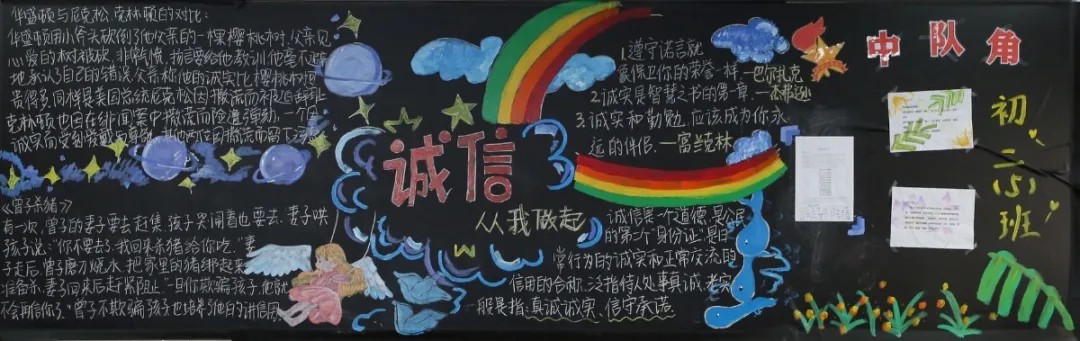 华盛顿与尼克松、克林顿的对比:
华盛顿用小斧头砍倒了他父亲的一棵樱桃树.父亲见
心爱的树被砍,非常气愤,扬言要给他教训.他毫不
地承认自己的错误.父亲称他的诚实比樱桃树
贵得多.同样是美国总统尼克松因撒谎而被迫辞职
克林顿也因在绯闻案中撒谎而险遭弹劾,一个因
诚实而受到爱戴与尊敬
《曾子杀猪》
有一次,曾子的妻子要去赶集,孩子哭闹着也要去.妻子哄
孩子说:"你不要去,我回来杀猪给你吃."妻
子走后,曾子磨刀烧水,把家里的猪绑起来
准备杀.妻子回来后赶紧阻止."但你欺骗孩子,他就
不会再信你了."曾子不欺骗孩子,也培养了他的讲信用
诚信
从我做起
1.遵守诺言就
像保卫你的荣誉一样.—巴尔扎克
2.诚实是智慧之书的第一章.—杰弗逊
3.诚实和勤勉,应该成为你永
远的伴侣.—富兰克林
诚信是一个道德,是公民
的第二个"身份证",是日
常行为的诚实和正常交流的
信用的合称.泛指待人处事真诚、老实
一般是指:真诚诚实、信守承诺.
中队角
初二(5)班